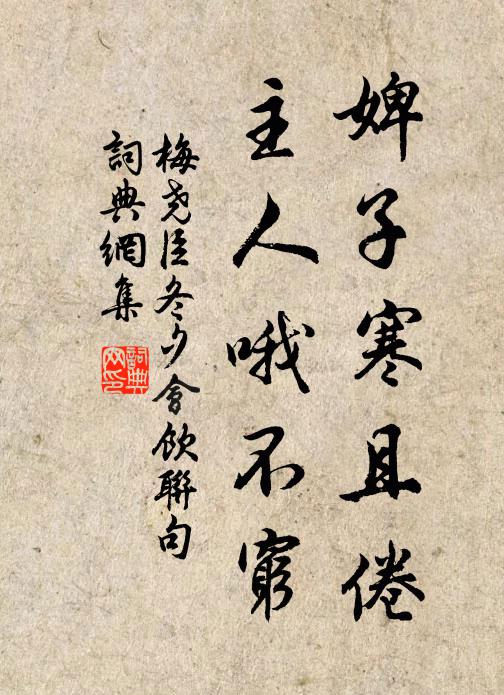 婢子寒且倦
主人哦不窮
梅堯臣冬夕會飲聯句
詞典網集
詞典網印